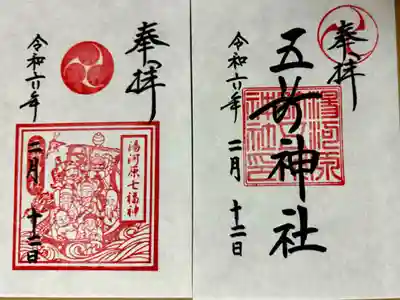 奉拝
五所神社
湯河原
神社印
令和六年 二月 十二日
奉拝
湯河原七福神
令和六年 二月 十二日